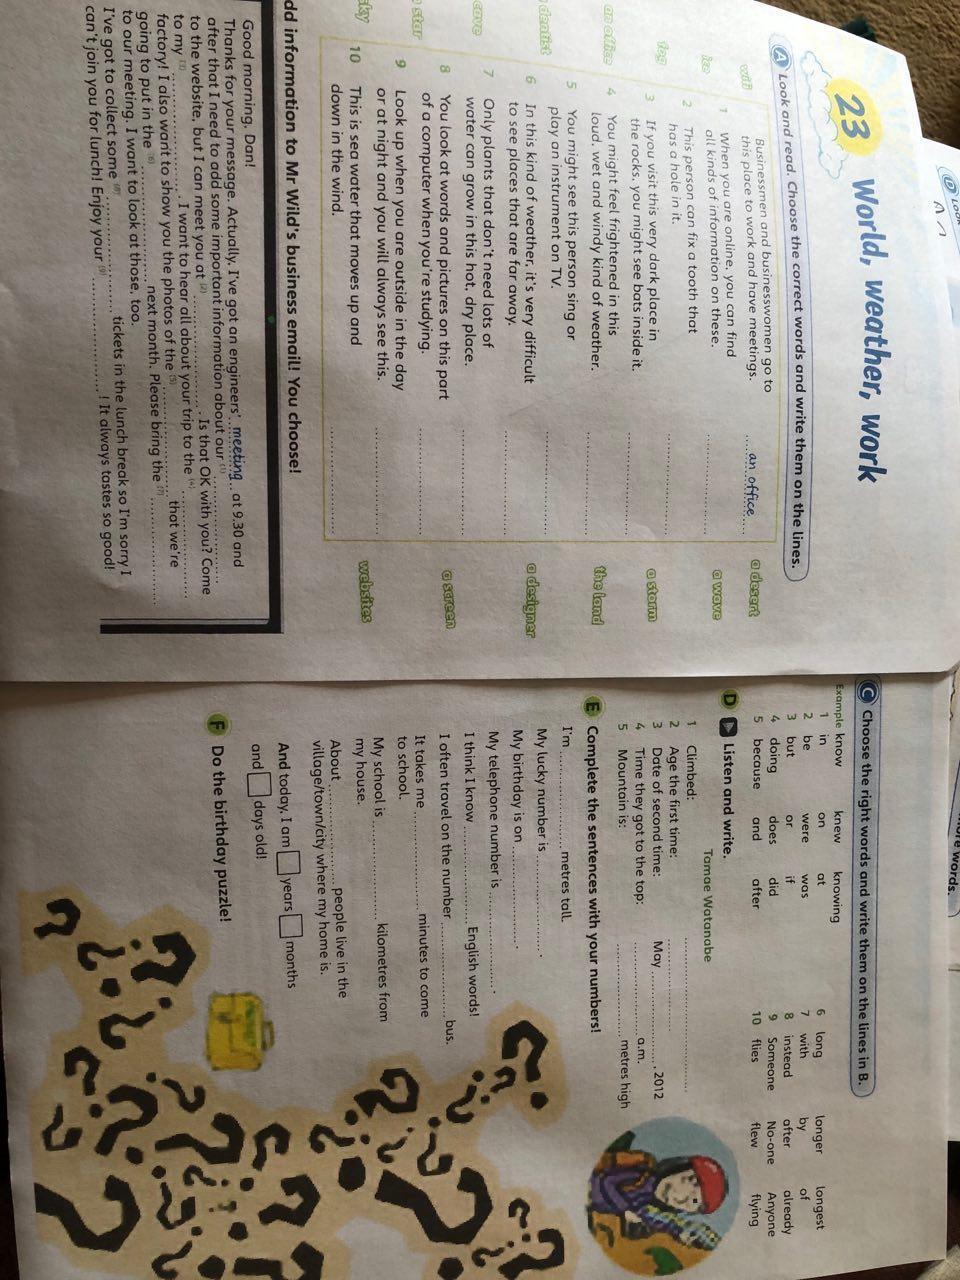 23 World, weather, work
A Look and read. Choose the correct words and write them on the lines.
wifi
ice
fog
an office
a dentist
cave
a star
sky
Businessmen and businesswomen go to
this place to work and have meetings. an office
1 When you are online, you can find
all kinds of information on these.
2 This person can fix a tooth that
has a hole in it.
3 If you visit this very dark place in
the rocks, you might see bats inside it.
4 You might feel frightened in this
loud, wet and windy kind of weather.
5 You might see this person sing or
play an instrument on TV.
6 In this kind of weather, it's very difficult
to see places that are far away.
7 Only plants that don't need lots of
water can grow in this hot, dry place.
8 You look at words and pictures on this part
of a computer when you're studying.
9 Look up when you are outside in the day
or at night and you will always see this.
10 This is sea water that moves up and
down in the wind.
a desert
a wave
a storm
the land
a designer
a screen
websites
dd information to Mr Wild's business email! You choose!
Good morning, Dan!
Thanks for your message. Actually, I've got an engineers' meeting at 9.30 and
after that I need to add some important information about our (1)
to the website, but I can meet you at (2) . Is that OK with you? Come
to my (3) . I want to hear all about your trip to the (4)
factory! I also want to show you the photos of the (5) that we're
going to put in the (6) next month. Please bring the (7)
to our meeting. I want to look at those, too.
I've got to collect some (8) tickets in the lunch break so I'm sorry I
can't join you for lunch! Enjoy your (9) ! It always tastes so good!
D Look
more words.
C Choose the right words and write them on the lines in B.
Example know knew knowing
1 in on at
2 be were was
3 but or if
4 doing does did
5 because and after
6 long longer longest
7 with by of
8 instead after already
9 Someone No-one Anyone
10 flies flew flying
D Listen and write.
Tamae Watanabe
1 Climbed:
2 Age the first time:
3 Date of second time: May , 2012
4 Time they got to the top: a.m.
5 Mountain is: metres high
E Complete the sentences with your numbers!
I'm metres tall.
My lucky number is .
My birthday is on .
My telephone number is .
I think I know English words!
I often travel on the number bus.
It takes me minutes to come
to school.
My school is kilometres from
my house.
About people live in the
village/town/city where my home is.
And today, I am years months
and days old!
F Do the birthday puzzle!